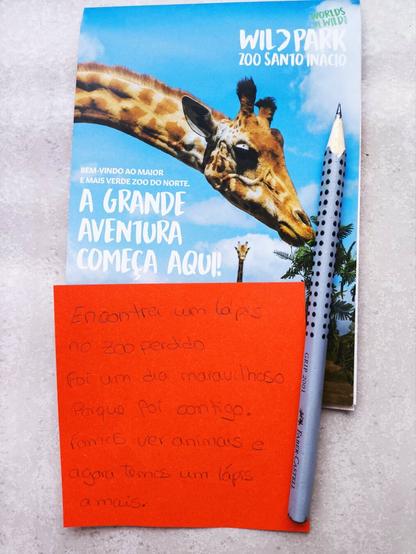 WORLDS
OF WILD!
WILD PARK
ZOO SANTO INÁCIO
BEM-VINDO AO MAIOR
E MAIS VERDE ZOO DO NORTE.
A GRANDE
AVENTURA
COMEÇA AQUI!
Encontrei um lápis
no zoo perdido
Foi um dia maravilhoso
Porque foi contigo.
Fomos ver animais e
agora Temos um lápis
a mais.
GRIP 2001
FABER-CASTELL